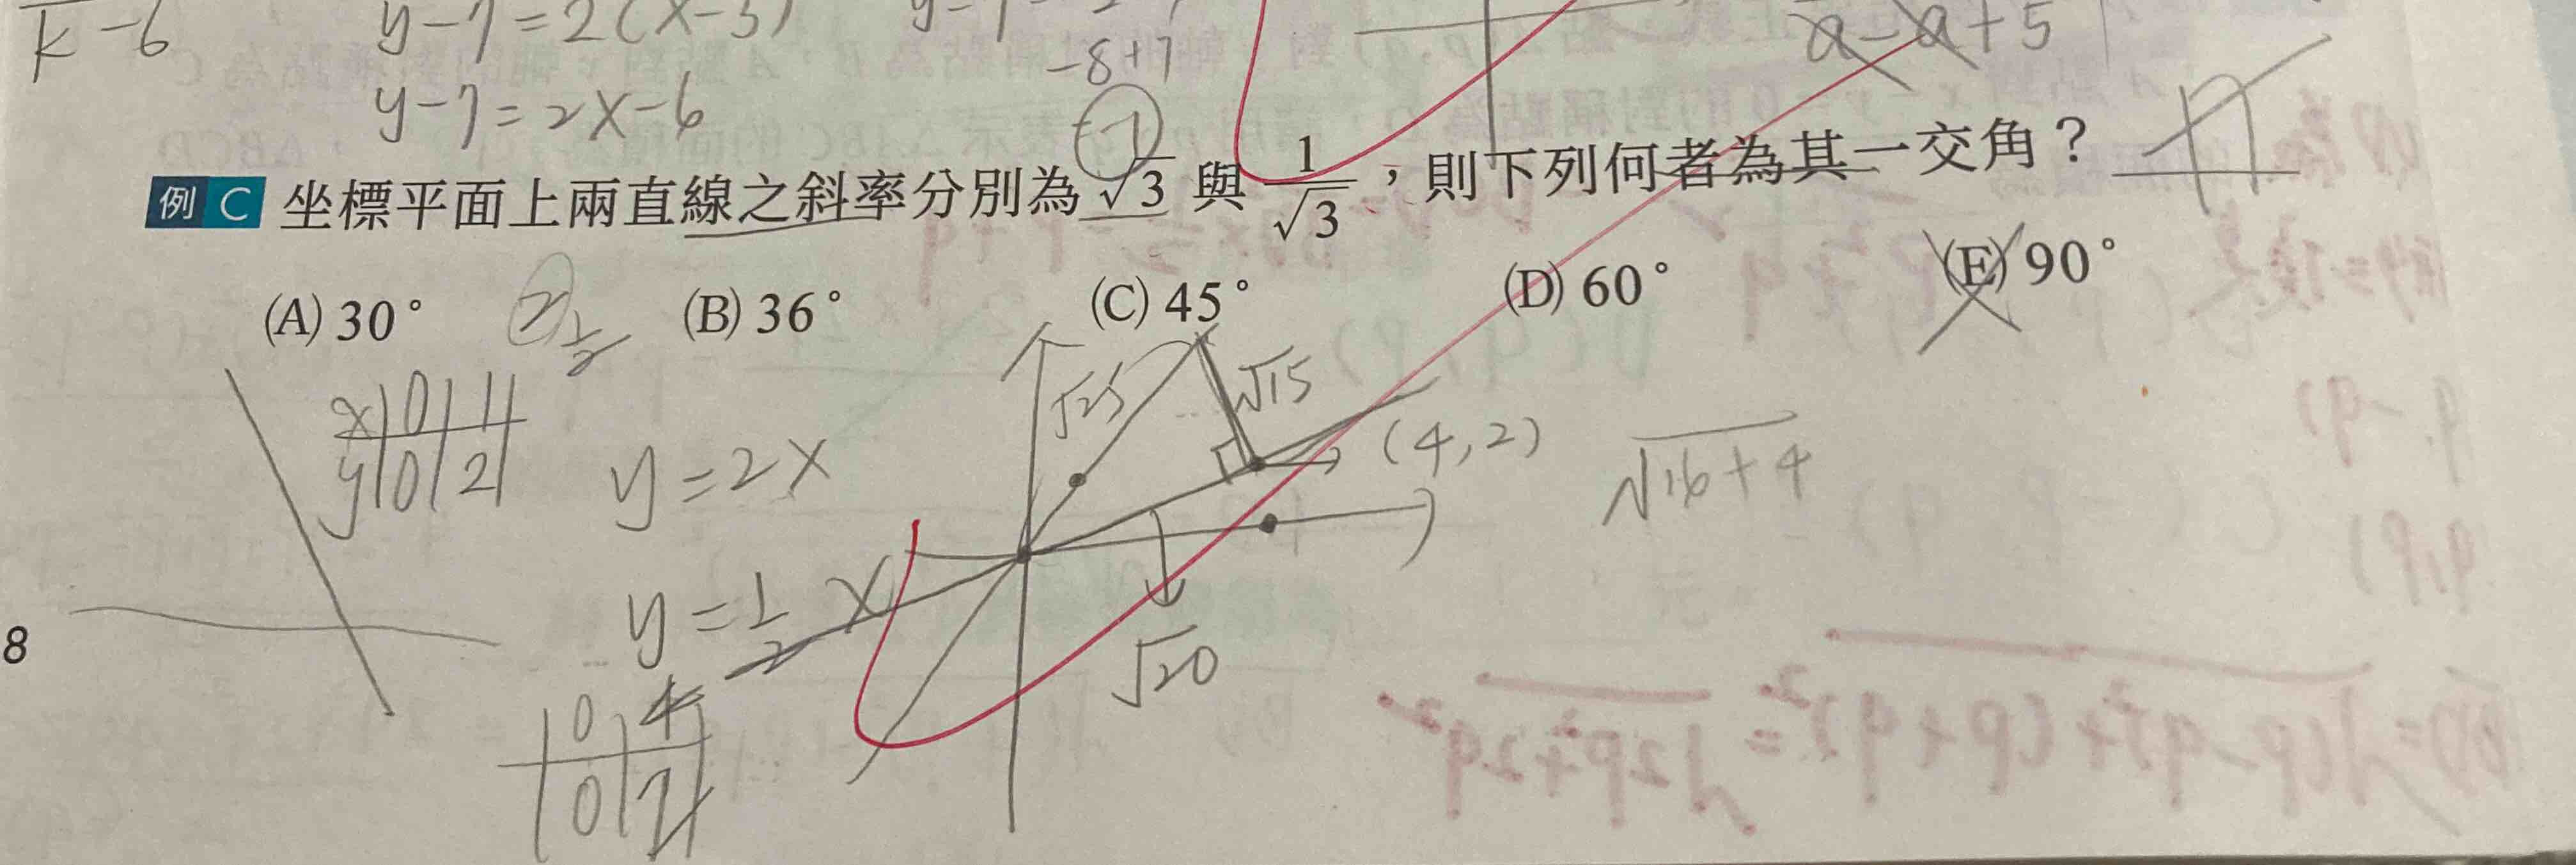 k-6 y-7=2(x-3)
-8+7 a-a+5
y-7=2x-6 -1
例 C 坐標平面上兩直線之斜率分別為 √3 與 1/√3，則下列何者為其一交角？
(A) 30° (B) 36° (C) 45° (D) 60° (E) 90°
2 1/2
x 0 1
y 0 2
y=2x √25 √15 (4,2) √16+4
y=1/2 x
√20
0 4
0 2
8